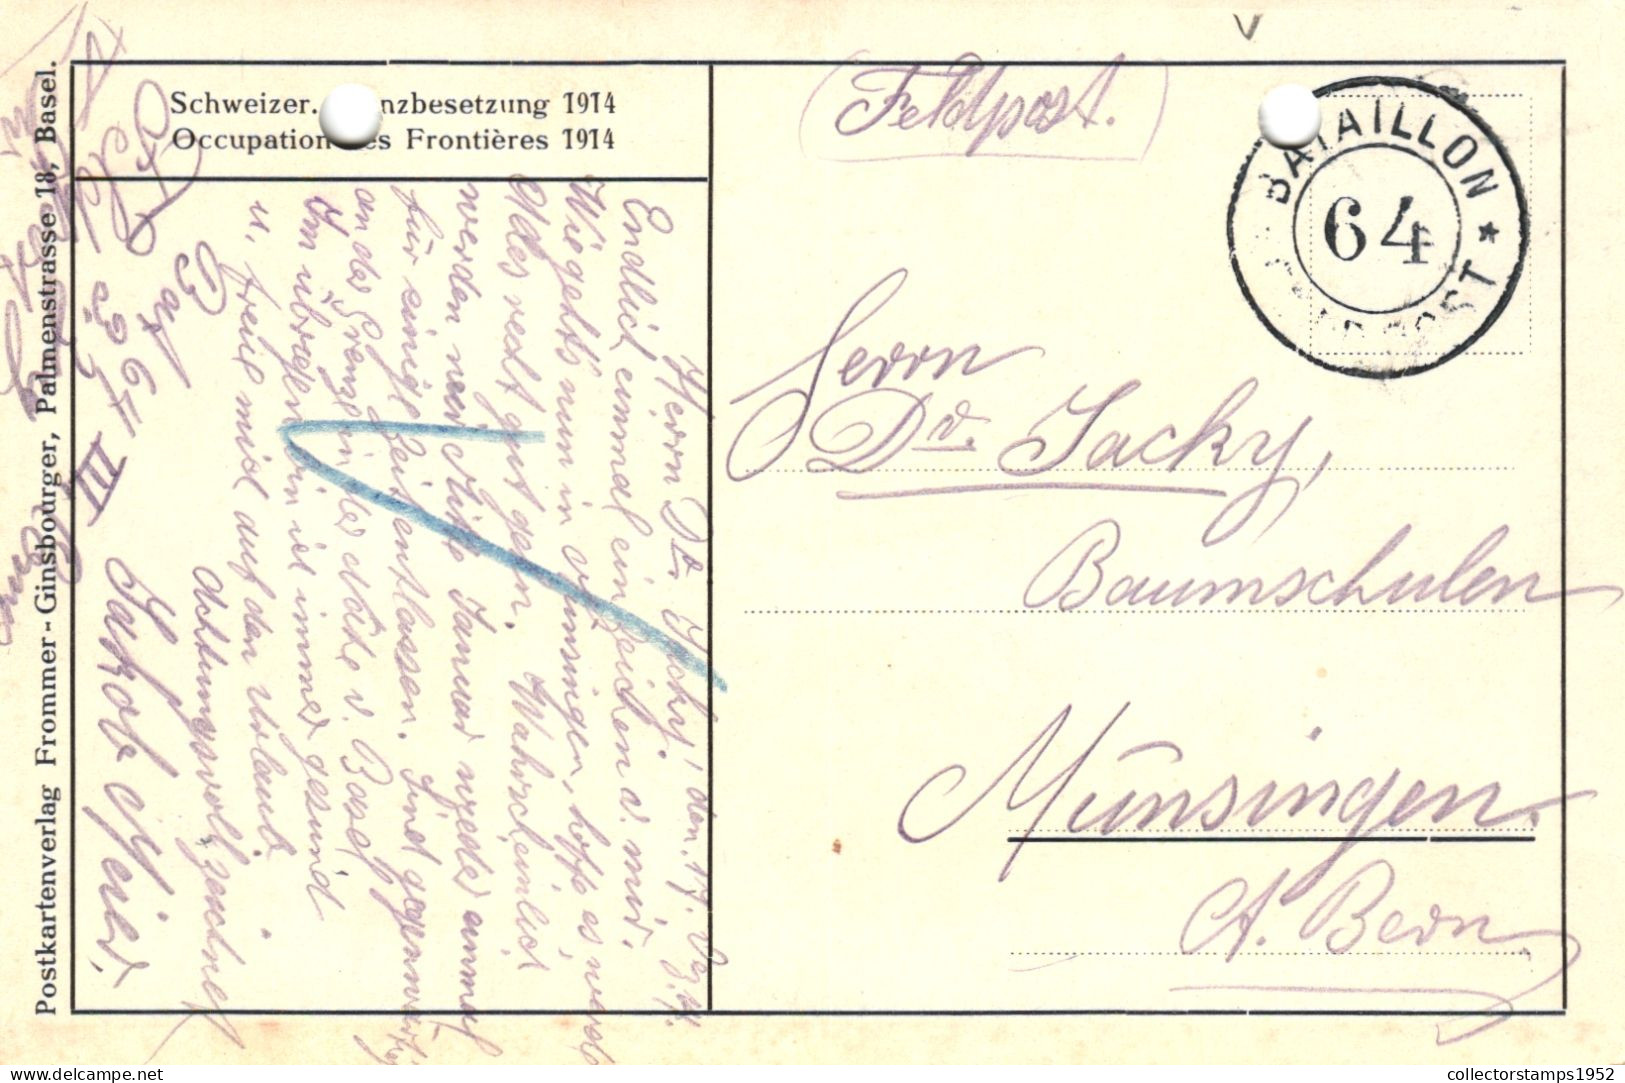 Schweizer. nzbesetzung 1914
Occupation des Frontières 1914
Postkartenverlag Frommer-Ginsbourger, Palmenstrasse 18, Basel.
(Feldpost.)
BATAILLON
64
POST
Herrn
Dr. Jacky,
Baumschulen
Münsingen.
Kt. Bern
Herrn Dr. Jacky! den 17. Dez. 14.
Endlich einmal ein Zeichen v. mir.
Wie gehts nun in Münsingen, hoffe es werde
Alles recht gut gehn. Wahrscheinlich
werden wir Mitte Januar wieder
für einige Zeit entlassen. Sind gegenwärtig
an der Grenze in der Nähe v. Basel
Im übrigen bin ich immer gesund
u. freue mich auf den Urlaub.
Achtungsvoll zeichnet
Jakob Meier.
Bat 64 III
Feldpost